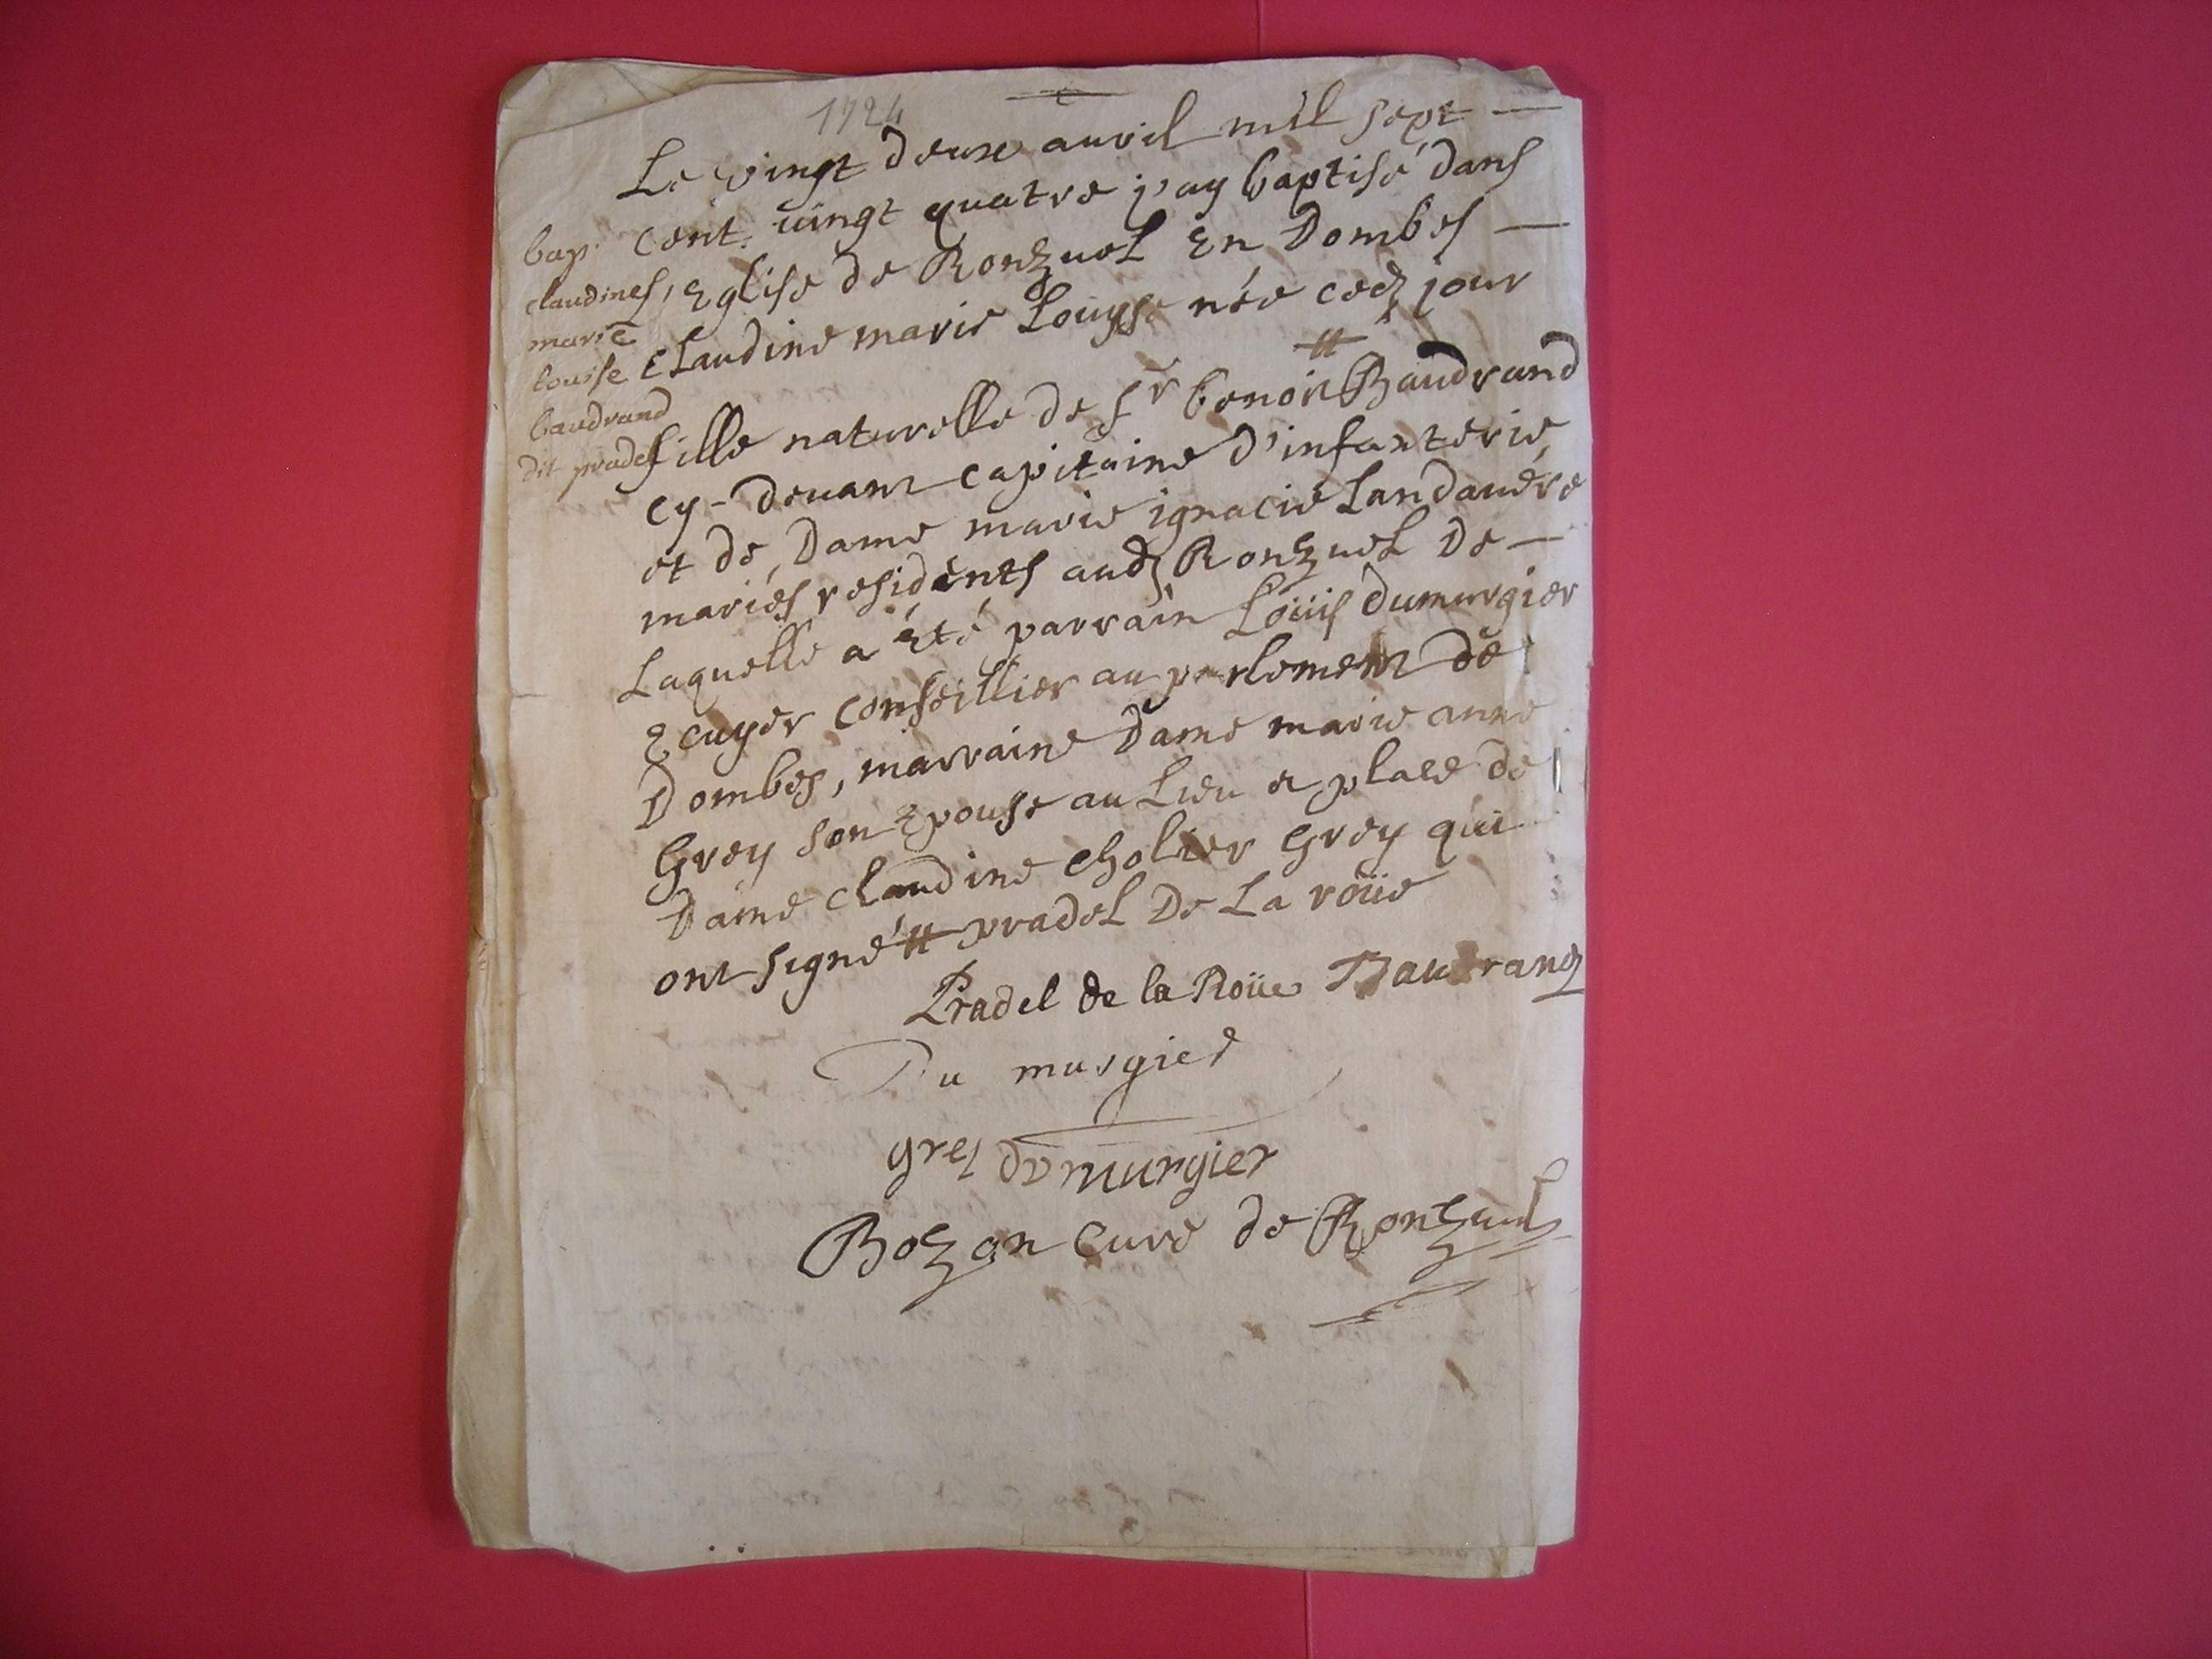 1724
Le vingt deux auvil mil sept
cent. vingt quatre j'ay baptisé dans
Eglise de Ronzuel En Dombes
Claudine marie Louyse née cedt jour
fille naturelle de sr benoit # Baudrand
cy-devant capitaine d'infanterie,
et de Dame marie ignacie Landauére
mariés residents audt Ronzuel De
Laquelle a été parrain Loüis dumurgier
Ecuyer Conseillier au parlement de
Dombes, marraine Dame marie anne
Grey son Epouse au Lieu et place de
Dame claudine cholier Grey qui
ont signé # pradel De La roüe
bap.
claudines,
marie
louise
baudrand
dit pradel
Pradel de la Roüe Baudrand
Du murgier
grey du murgier
Bozon Curé de Ronzuel